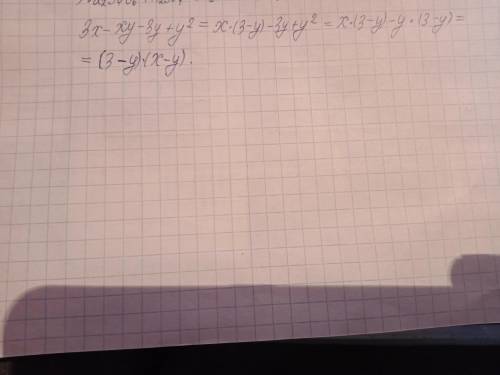 3x - xy - 3y + y² = x·(3-y) - 3y + y² = x·(3-y) - y·(3-y) =
= (3-y)·(x-y).